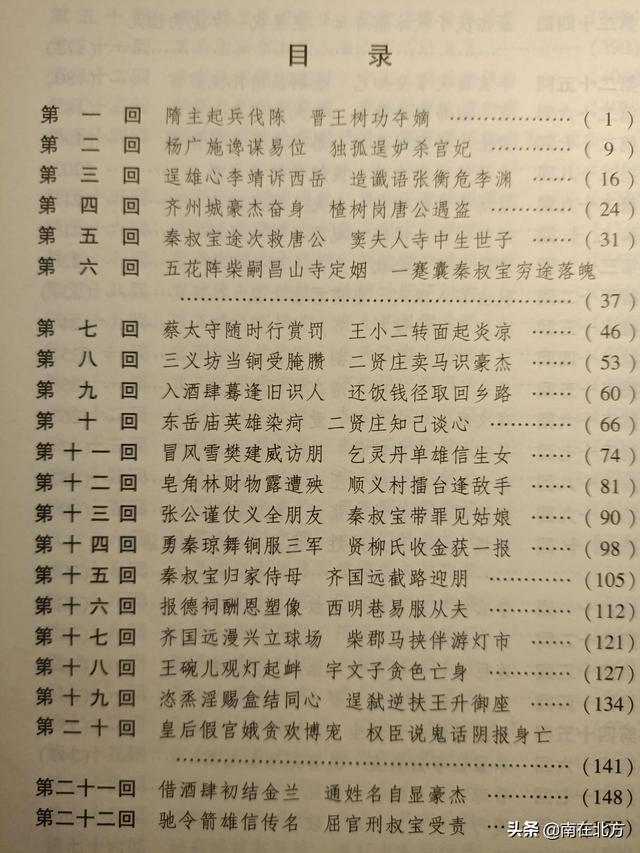 目 录
第 一 回 隋主起兵伐陈 晋王树功夺嫡 ……………… ( 1 )
第 二 回 杨广施谗谋易位 独孤逞妒杀宫妃 ……… ( 9 )
第 三 回 逞雄心李靖诉西岳 造谶语张衡危李渊 …… ( 16 )
第 四 回 齐州城豪杰奋身 楂树岗唐公遇盗 ………… ( 24 )
第 五 回 秦叔宝途次救唐公 窦夫人寺中生世子 …… ( 31 )
第 六 回 五花阵柴嗣昌山寺定姻 一蹇囊秦叔宝穷途落魄
………………………………………………………… ( 37 )
第 七 回 蔡太守随时行赏罚 王小二转面起炎凉 …… ( 46 )
第 八 回 三义坊当锏受腌臜 二贤庄卖马识豪杰 …… ( 53 )
第 九 回 入酒肆蓦逢旧识人 还饭钱径取回乡路 …… ( 60 )
第 十 回 东岳庙英雄染疴 二贤庄知己谈心 ………… ( 66 )
第 十 一 回 冒风雪樊建威访朋 乞灵丹单雄信生女 …… ( 74 )
第 十 二 回 皂角林财物露遭殃 顺义村擂台逢敌手 …… ( 81 )
第 十 三 回 张公谨仗义全朋友 秦叔宝带罪见姑娘 …… ( 90 )
第 十 四 回 勇秦琼舞锏服三军 贤柳氏收金获一报 …… ( 98 )
第 十 五 回 秦叔宝归家侍母 齐国远截路迎朋 ………… (105)
第 十 六 回 报德祠酬恩塑像 西明巷易服从夫 ………… (112)
第 十 七 回 齐国远漫兴立球场 柴郡马挟伴游灯市 …… (121)
第 十 八 回 王碗儿观灯起衅 宇文子贪色亡身 ………… (127)
第 十 九 回 恣烝淫赐盒结同心 逞弑逆扶王升御座 …… (134)
第 二 十 回 皇后假宫娥贪欢博宠 权臣说鬼话阴报身亡
………………………………………………………… (141)
第二十一回 借酒肆初结金兰 通姓名自显豪杰 ………… (148)
第二十二回 驰令箭雄信传名 屈官刑叔宝受责 ……
头条 @南在北方